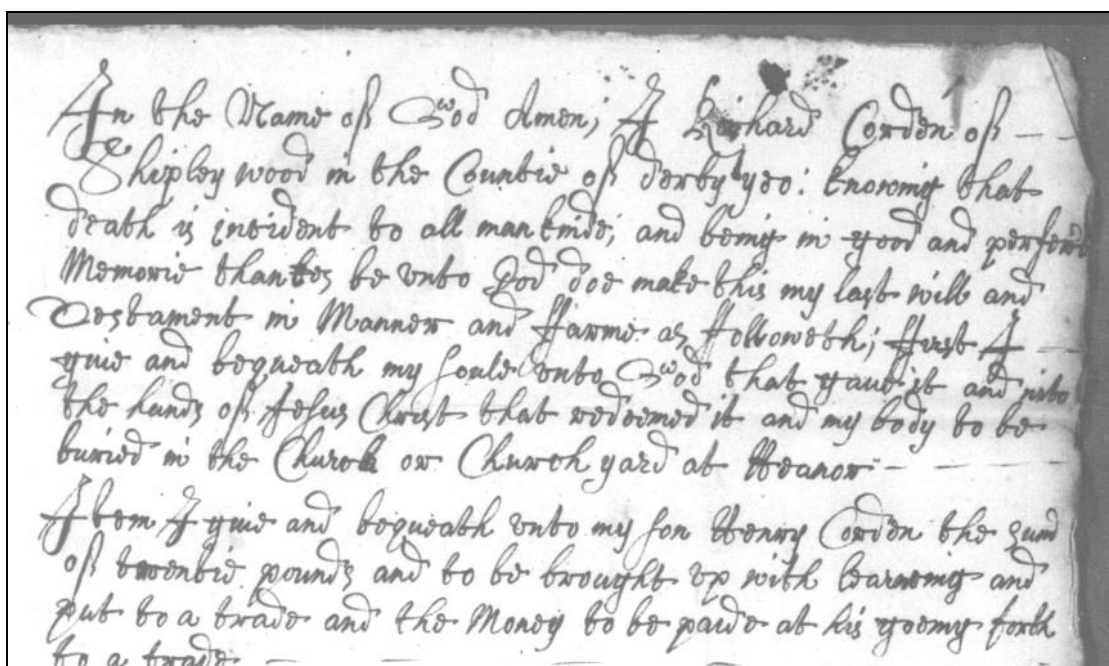 In the Name of God Amen; I Richard Corden of
Shipley wood in the Countie of derby yeo: knowing that
death is incident to all mankinde, and being in good and perfect
Memorie thankes be unto God doe make this my last will and
Testament in Manner and fforme as ffolloweth; ffirst I
give and bequeath my soule unto God that gave it and into
the hands of Jesus Christ that redeemed it and my body to be
buried in the Church or Church yard at Heanor
Item I give and bequeath unto my son Henry Corden the sum
of twentie pounds and to be brought up with learneing and
put to a trade and the Money to be paide at his goeing forth
to a trade